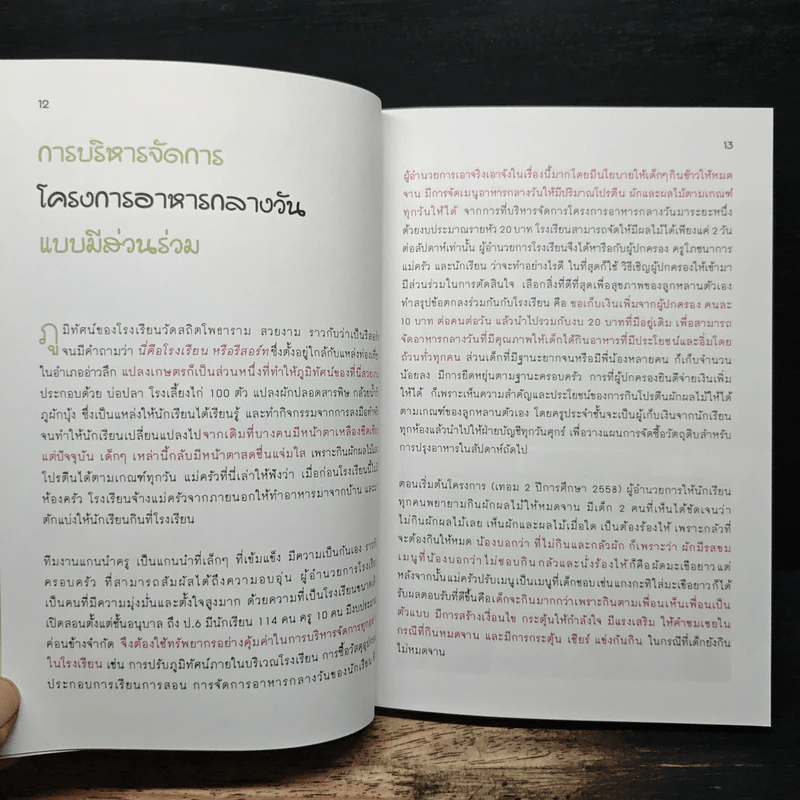 12
การบริหารจัดการ
โครงการอาหารกลางวัน
แบบมีส่วนร่วม
ภูมิทัศน์ของโรงเรียนวัดสถิตโพธาราม สวยงาม ราวกับว่าเป็นรีสอร์ท
จนมีคำถามว่า นี่คือโรงเรียน หรือรีสอร์ท ซึ่งตั้งอยู่ใกล้กับแหล่งท่องเที่ยว
ในอำเภออ่าวลึก แปลงเกษตรก็เป็นส่วนหนึ่งที่ทำให้ภูมิทัศน์ของที่นี่สวยงาม
ประกอบด้วย บ่อปลา โรงเลี้ยงไก่ 100 ตัว แปลงผักปลอดสารพิษ กล้วยน้ำ
ภูผักบุ้ง ซึ่งเป็นแหล่งให้นักเรียนได้เรียนรู้ และทำกิจกรรมจากการลงมือทำ
จนทำให้นักเรียนเปลี่ยนแปลงไปจากเดิมที่บางคนมีหน้าตาเหลืองซีดเซียว
แต่ปัจจุบัน เด็กๆ เหล่านี้กลับมีหน้าตาสดชื่นแจ่มใส เพราะกินผักผลไม้และ
โปรตีนได้ตามเกณฑ์ทุกวัน แม่ครัวที่นี่เล่าให้ฟังว่า เมื่อก่อนโรงเรียนนี้ไม่มี
ห้องครัว โรงเรียนจ้างแม่ครัวจากภายนอกให้ทำอาหารมาจากบ้าน และมา
ตักแบ่งให้นักเรียนกินที่โรงเรียน
ทีมงานแกนนำครู เป็นแกนนำที่เล็กๆ ที่เข้มแข็ง มีความเป็นกันเอง ราวกับ
ครอบครัว ที่สามารถสัมผัสได้ถึงความอบอุ่น ผู้อำนวยการโรงเรียน
เป็นคนที่มีความมุ่งมั่นและตั้งใจสูงมาก ด้วยความที่เป็นโรงเรียนขนาดเล็ก
เปิดสอนตั้งแต่ชั้นอนุบาล ถึง ป.6 มีนักเรียน 114 คน ครู 10 คน มีงบประมาณ
ค่อนข้างจำกัด จึงต้องใช้ทรัพยากรอย่างคุ้มค่าในการบริหารจัดการทุก
ในโรงเรียน เช่น การปรับภูมิทัศน์ภายในบริเวณโรงเรียน การซื้อวัสดุอุปกรณ์
ประกอบการเรียนการสอน การจัดการอาหารกลางวันของนักเรียน
13
ผู้อำนวยการเอาจริงเอาจังในเรื่องนี้มากโดยมีนโยบายให้เด็กๆกินข้าวให้หมด
จาน มีการจัดเมนูอาหารกลางวันให้มีปริมาณโปรตีน ผักและผลไม้ตามเกณฑ์
ทุกวันให้ได้ จากการที่บริหารจัดการโครงการอาหารกลางวันมาระยะหนึ่ง
ด้วยงบประมาณรายหัว 20 บาท โรงเรียนสามารถจัดให้มีผลไม้ได้เพียงแค่ 2 วัน
ต่อสัปดาห์เท่านั้น ผู้อำนวยการโรงเรียนจึงได้หารือกับผู้ปกครอง ครูโภชนาการ
แม่ครัว และนักเรียน ว่าจะทำอย่างไรดี ในที่สุดก็ใช้ วิธีเชิญผู้ปกครองให้เข้ามา
มีส่วนร่วมในการตัดสินใจ เลือกสิ่งที่ดีที่สุดเพื่อสุขภาพของลูกหลานตัวเอง
ทำสรุปข้อตกลงร่วมกันกับโรงเรียน คือ ขอเก็บเงินเพิ่มจากผู้ปกครอง คนละ
10 บาท ต่อคนต่อวัน แล้วนำไปรวมกับงบ 20 บาทที่มีอยู่เดิม เพื่อสามารถ
จัดอาหารกลางวันที่มีคุณภาพให้เด็กได้กินอาหารที่มีประโยชน์และอิ่มโดย
ถ้วนทั่วทุกคน ส่วนเด็กที่มีฐานะยากจนหรือมีพี่น้องหลายคน ก็เก็บจำนวน
น้อยลง มีการยืดหยุ่นตามฐานะครอบครัว การที่ผู้ปกครองยินดีจ่ายเงินเพิ่ม
ให้ได้ ก็เพราะเห็นความสำคัญและประโยชน์ของการกินโปรตีนผักผลไม้ให้ได้
ตามเกณฑ์ของลูกหลานตัวเอง โดยครูประจำชั้นจะเป็นผู้เก็บเงินจากนักเรียน
ทุกห้องแล้วนำไปให้ฝ่ายบัญชีทุกวันศุกร์ เพื่อวางแผนการจัดซื้อวัตถุดิบสำหรับ
การปรุงอาหารในสัปดาห์ถัดไป
ตอนเริ่มต้นโครงการ (เทอม 2 ปีการศึกษา 2558) ผู้อำนวยการให้นักเรียน
ทุกคนพยายามกินผักผลไม้ให้หมดจาน มีเด็ก 2 คนที่เห็นได้ชัดเจนว่า
ไม่กินผักผลไม้เลย เห็นผักและผลไม้เมื่อใด เป็นต้องร้องไห้ เพราะกลัวที่
จะต้องกินให้หมด น้องบอกว่า ที่ไม่กินและกลัวผัก ก็เพราะว่า ผักมีรสขม
เมนูที่น้องบอกว่า ไม่ชอบกิน กลัวและนั่งร้องไห้ ก็คือผัดมะเขือยาว แต่
หลังจากนั้นแม่ครัวปรับเมนู เป็นเมนูที่เด็กชอบ เช่นแกงกะทิใส่มะเขือยาวก็ได้
ผลตอบรับที่ดีขึ้นคือเด็กจะกินมากกว่าเพราะกินตามเพื่อนเห็นเพื่อนเป็น
ตัวแบบ มีการสร้างเงื่อนไข กระตุ้นให้กำลังใจ มีแรงเสริม ให้คำชมเชยใน
กรณีที่กินหมดจาน และมีการกระตุ้น เชียร์ แข่งกันกิน ในกรณีที่เด็กยังกิน
ไม่หมดจาน